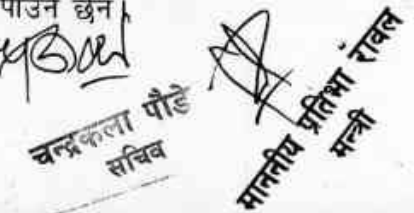 पाउने छैन।
चन्द्रकला पौडे
सचिव
माननीय प्रतिभा रावल
मन्त्री